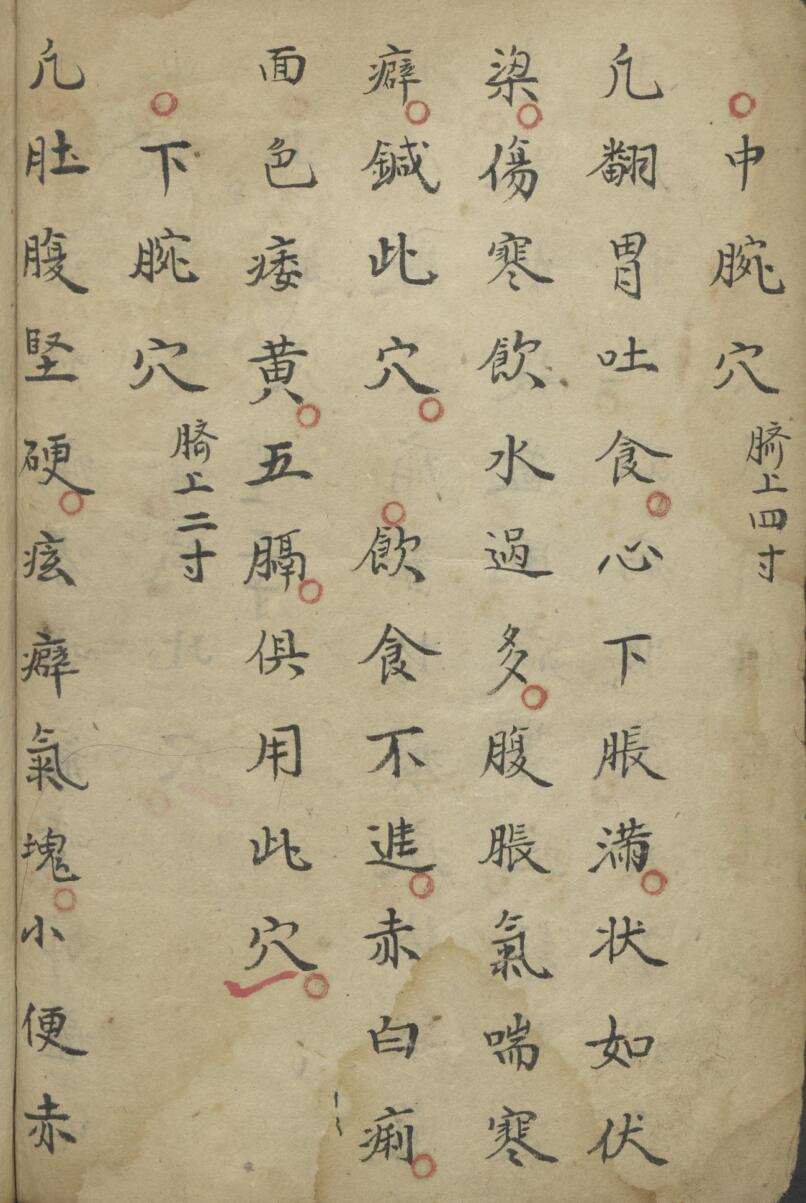 中腕穴 臍上四寸
凢翻胃吐食心下脹滿状如伏
梁傷寒飲水過多腹脹氣喘寒
癖鍼此穴 飲食不進赤白痢
面色痿黄五膈俱用此穴
下腕穴 臍上二寸
凢肚腹堅硬痃癖氣塊小便赤